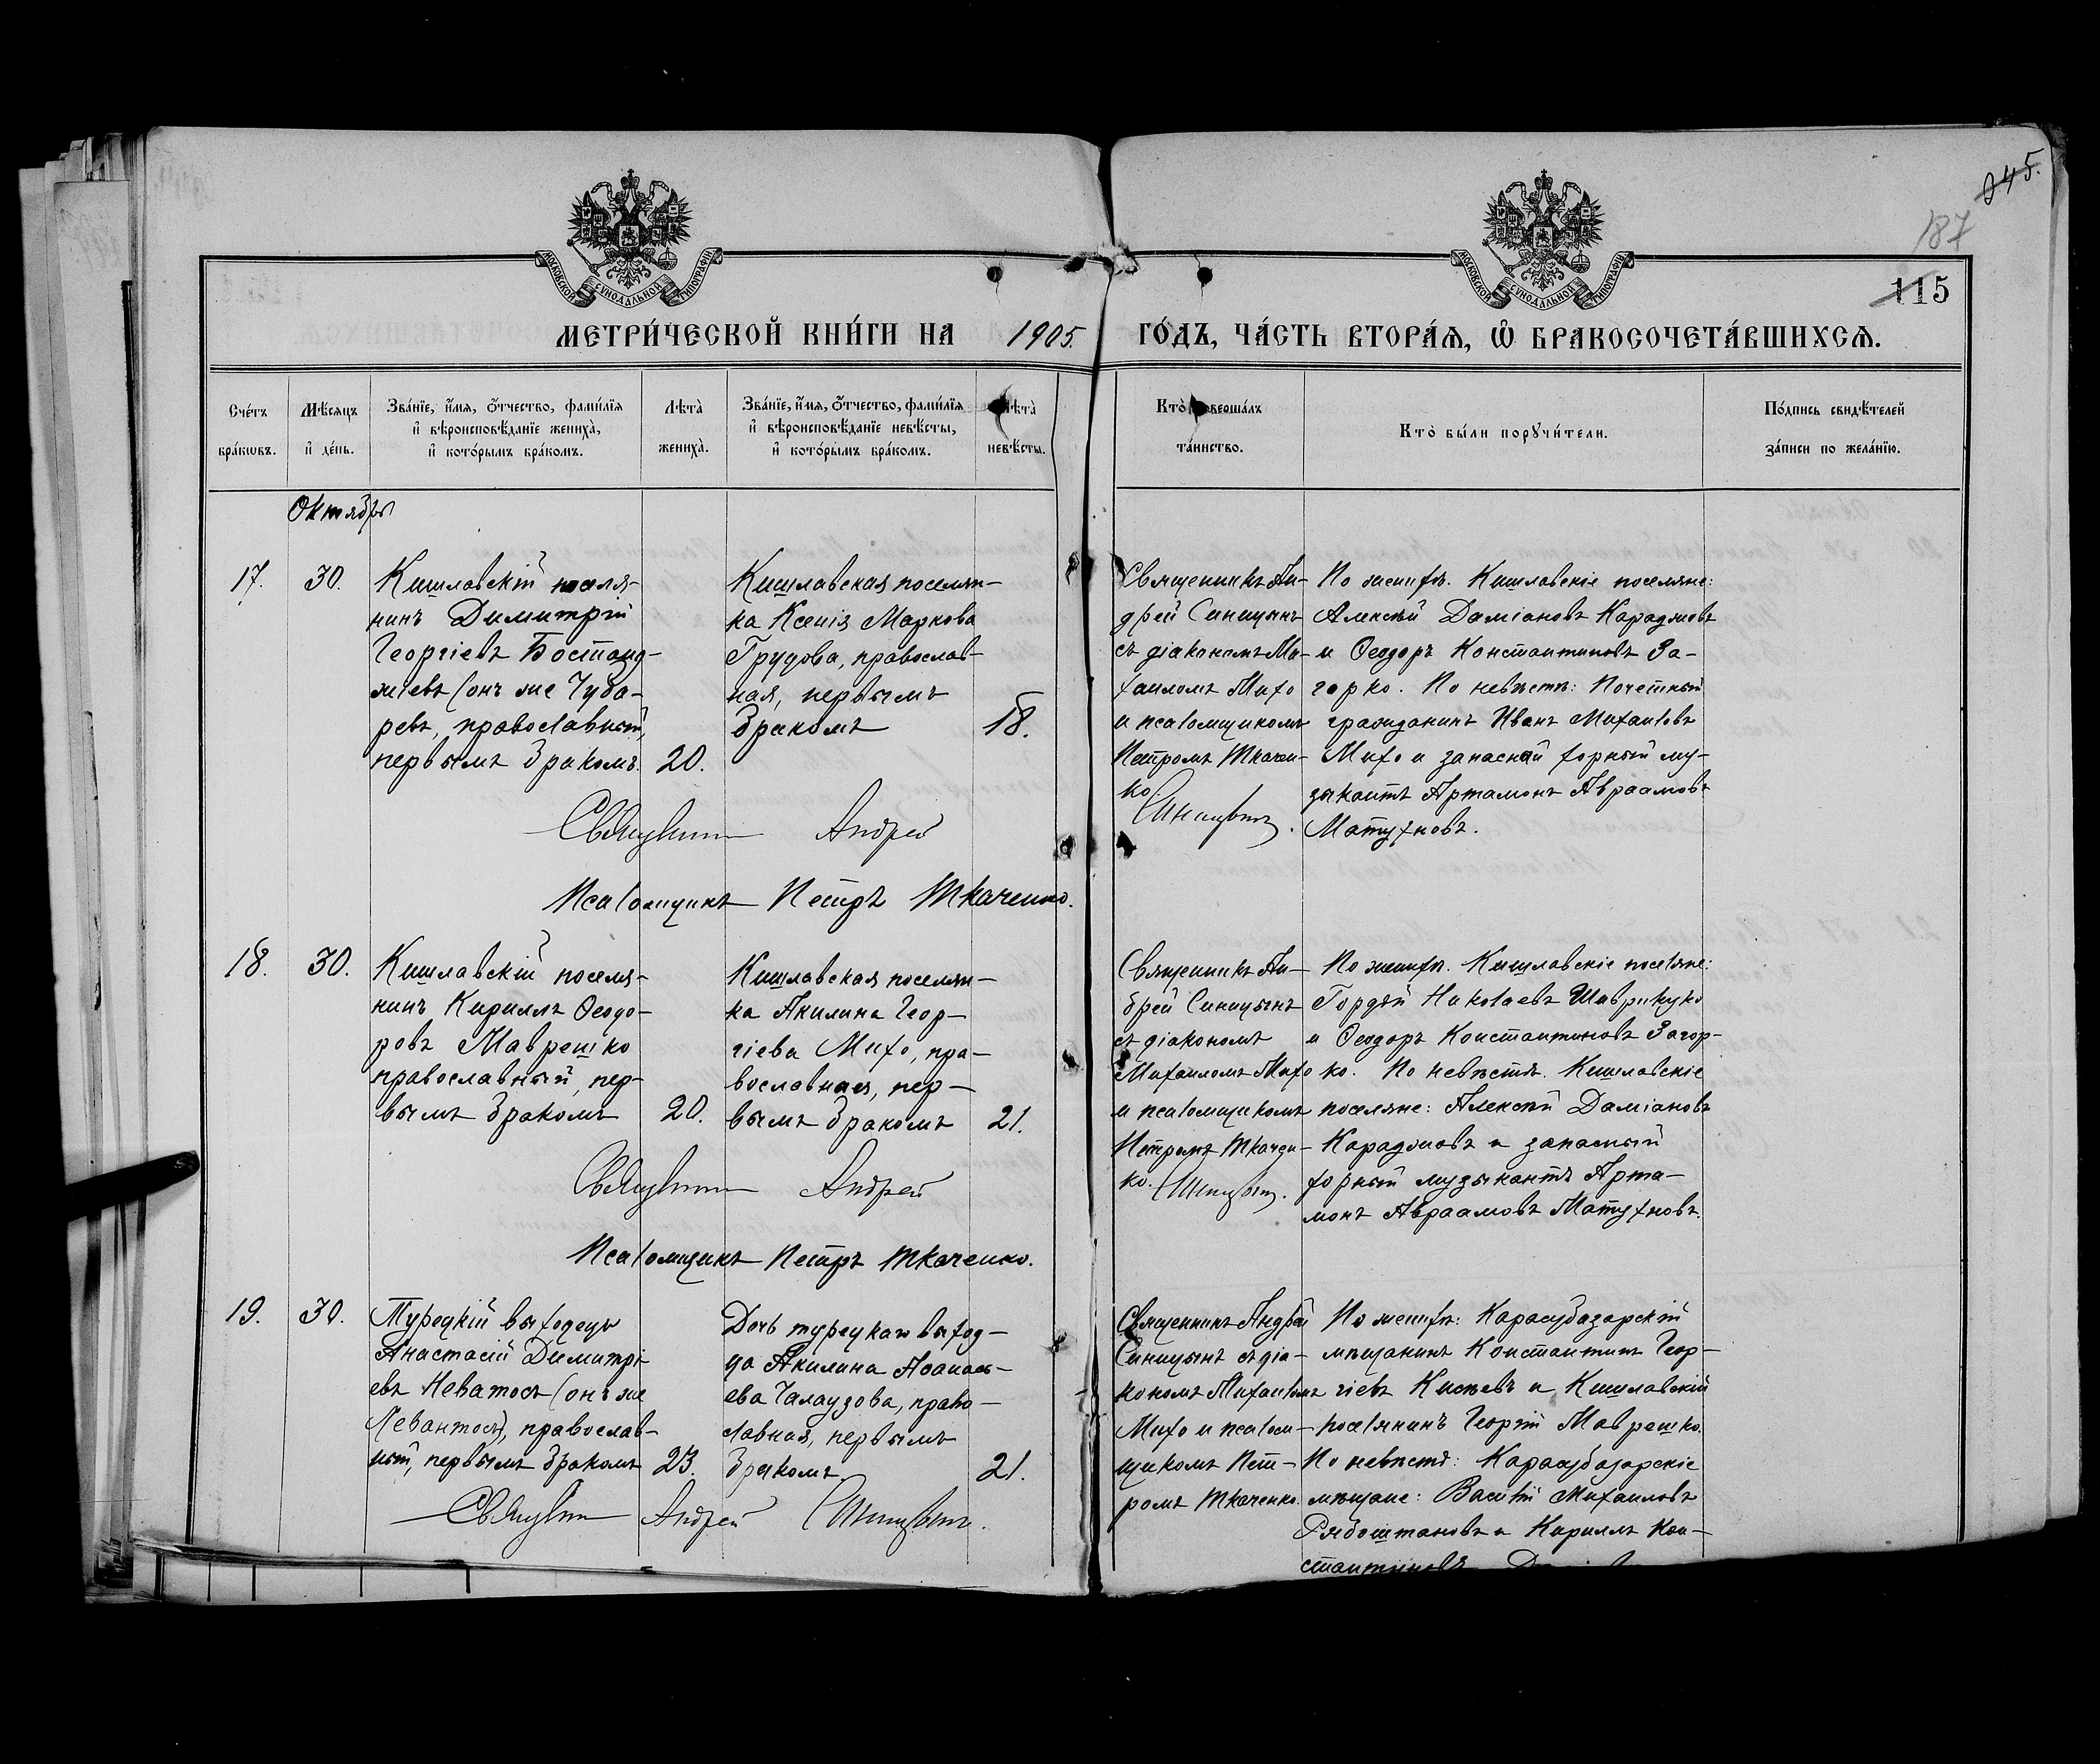 245.
187
115
МОСКОВСКОЙ СУНОДАЛЬНОЙ ТИПОГРАФІИ
МОСКОВСКОЙ СУНОДАЛЬНОЙ ТИПОГРАФІИ
МЕТРИ́ЧЕСКОЙ КНИ́ГИ НА 1905. ГО́ДЪ, ЧА́СТЬ ВТОРА́Ѧ, Ѽ БРАКОСОЧЕТА́ВШИХСѦ.
Сче́тъ
бра́кѡвъ.
Мѣ́сяцъ
и҆ де́нь.
Зва́нїе, и҆́мя, ѻ҆́тчество, фами́лїя
и҆ вѣроисповѣ́данїе жениха̀,
и҆ кото́рымъ бра́комъ.
Лѣта̀
жениха̀.
Зва́нїе, и҆́мя, ѻ҆́тчество, фами́лїя
и҆ вѣроисповѣ́данїе невѣ́сты,
и҆ кото́рымъ бра́комъ.
Лѣта̀
невѣ́сты.
Кто̀ соверша́лъ
та́инство.
Кто̀ бы́ли порꙋчи́тели.
По́дпись свидѣ́телей
за́писи по жела́нїю.
Октябрь
17.
30.
Кишлавскій поселя-
нинъ Димитрій
Георгіевъ Бостанд-
жіевъ (онъ же Чуба-
ревъ, православный,
первымъ бракомъ.
20.
Кишлавская поселян-
ка Ксенія Маркова
Грудова, православ-
ная, первымъ
бракомъ
18.
Священникъ Ан-
дрей Синицынъ
съ діакономъ Ми-
хаиломъ Михо
и псаломщикомъ
Петромъ Ткачен-
ко.
Синицынъ.
По женихѣ. Кишлавскіе поселяне:
Алексѣй Даміановъ Караджовъ
и Ѳеодоръ Константиновъ За-
горко. По невѣстѣ: Почетный
гражданинъ Иванъ Михаиловъ
Михо и запасный хорный му-
зыкантъ Артамонъ Авраамовъ
Матухновъ.
Священникъ Андрей
Псаломщикъ Петръ Ткаченко.
18.
30.
Кишлавскій поселя-
нинъ Кириллъ Ѳеодо-
ровъ Маврешко
православный, пер-
вымъ бракомъ
20.
Кишлавская поселян-
ка Акилина Геор-
гіева Михо, пра-
вославная, пер-
вымъ бракомъ
21.
Священникъ Ан-
дрей Синицынъ
съ діакономъ
Михаиломъ Михо
и псаломщикомъ
Петромъ Ткачен-
ко. Синицынъ.
По женихѣ. Кишлавскіе поселяне:
Гордѣй Николаевъ Шаврикуко
и Ѳеодоръ Константиновъ Загор-
ко. По невѣстѣ. Кишлавскіе
поселяне: Алексѣй Даміановъ
Караджовъ и запасный
хорный музыкантъ Арта-
монъ Авраамовъ Матухновъ.
Священникъ Андрей
Псаломщикъ Петръ Ткаченко.
19.
30.
Турецкій выходецъ
Анастасій Димитрі-
евъ Неватосъ (онъ же
Левантосъ), православ-
ный, первымъ бракомъ
23.
Дочь турецкаго выход-
ца Акилина Аѳанась-
ева Чалаузова, право-
славная, первымъ
бракомъ.
21.
Священникъ Андрей
Синицынъ съ діа-
кономъ Михаиломъ
Михо и псалом-
щикомъ Пет-
ромъ Ткаченко.
По женихѣ: Карасубазарскій
мѣщанинъ Константинъ Геор-
гіевъ Кисѣевъ и Кишлавскій
поселянинъ Георгій Маврешко.
По невѣстѣ: Карасубазарскіе
мѣщане: Василій Михаиловъ
Рябоштановъ и Кириллъ Кон-
стантиновъ
Священникъ Андрей Синицынъ.